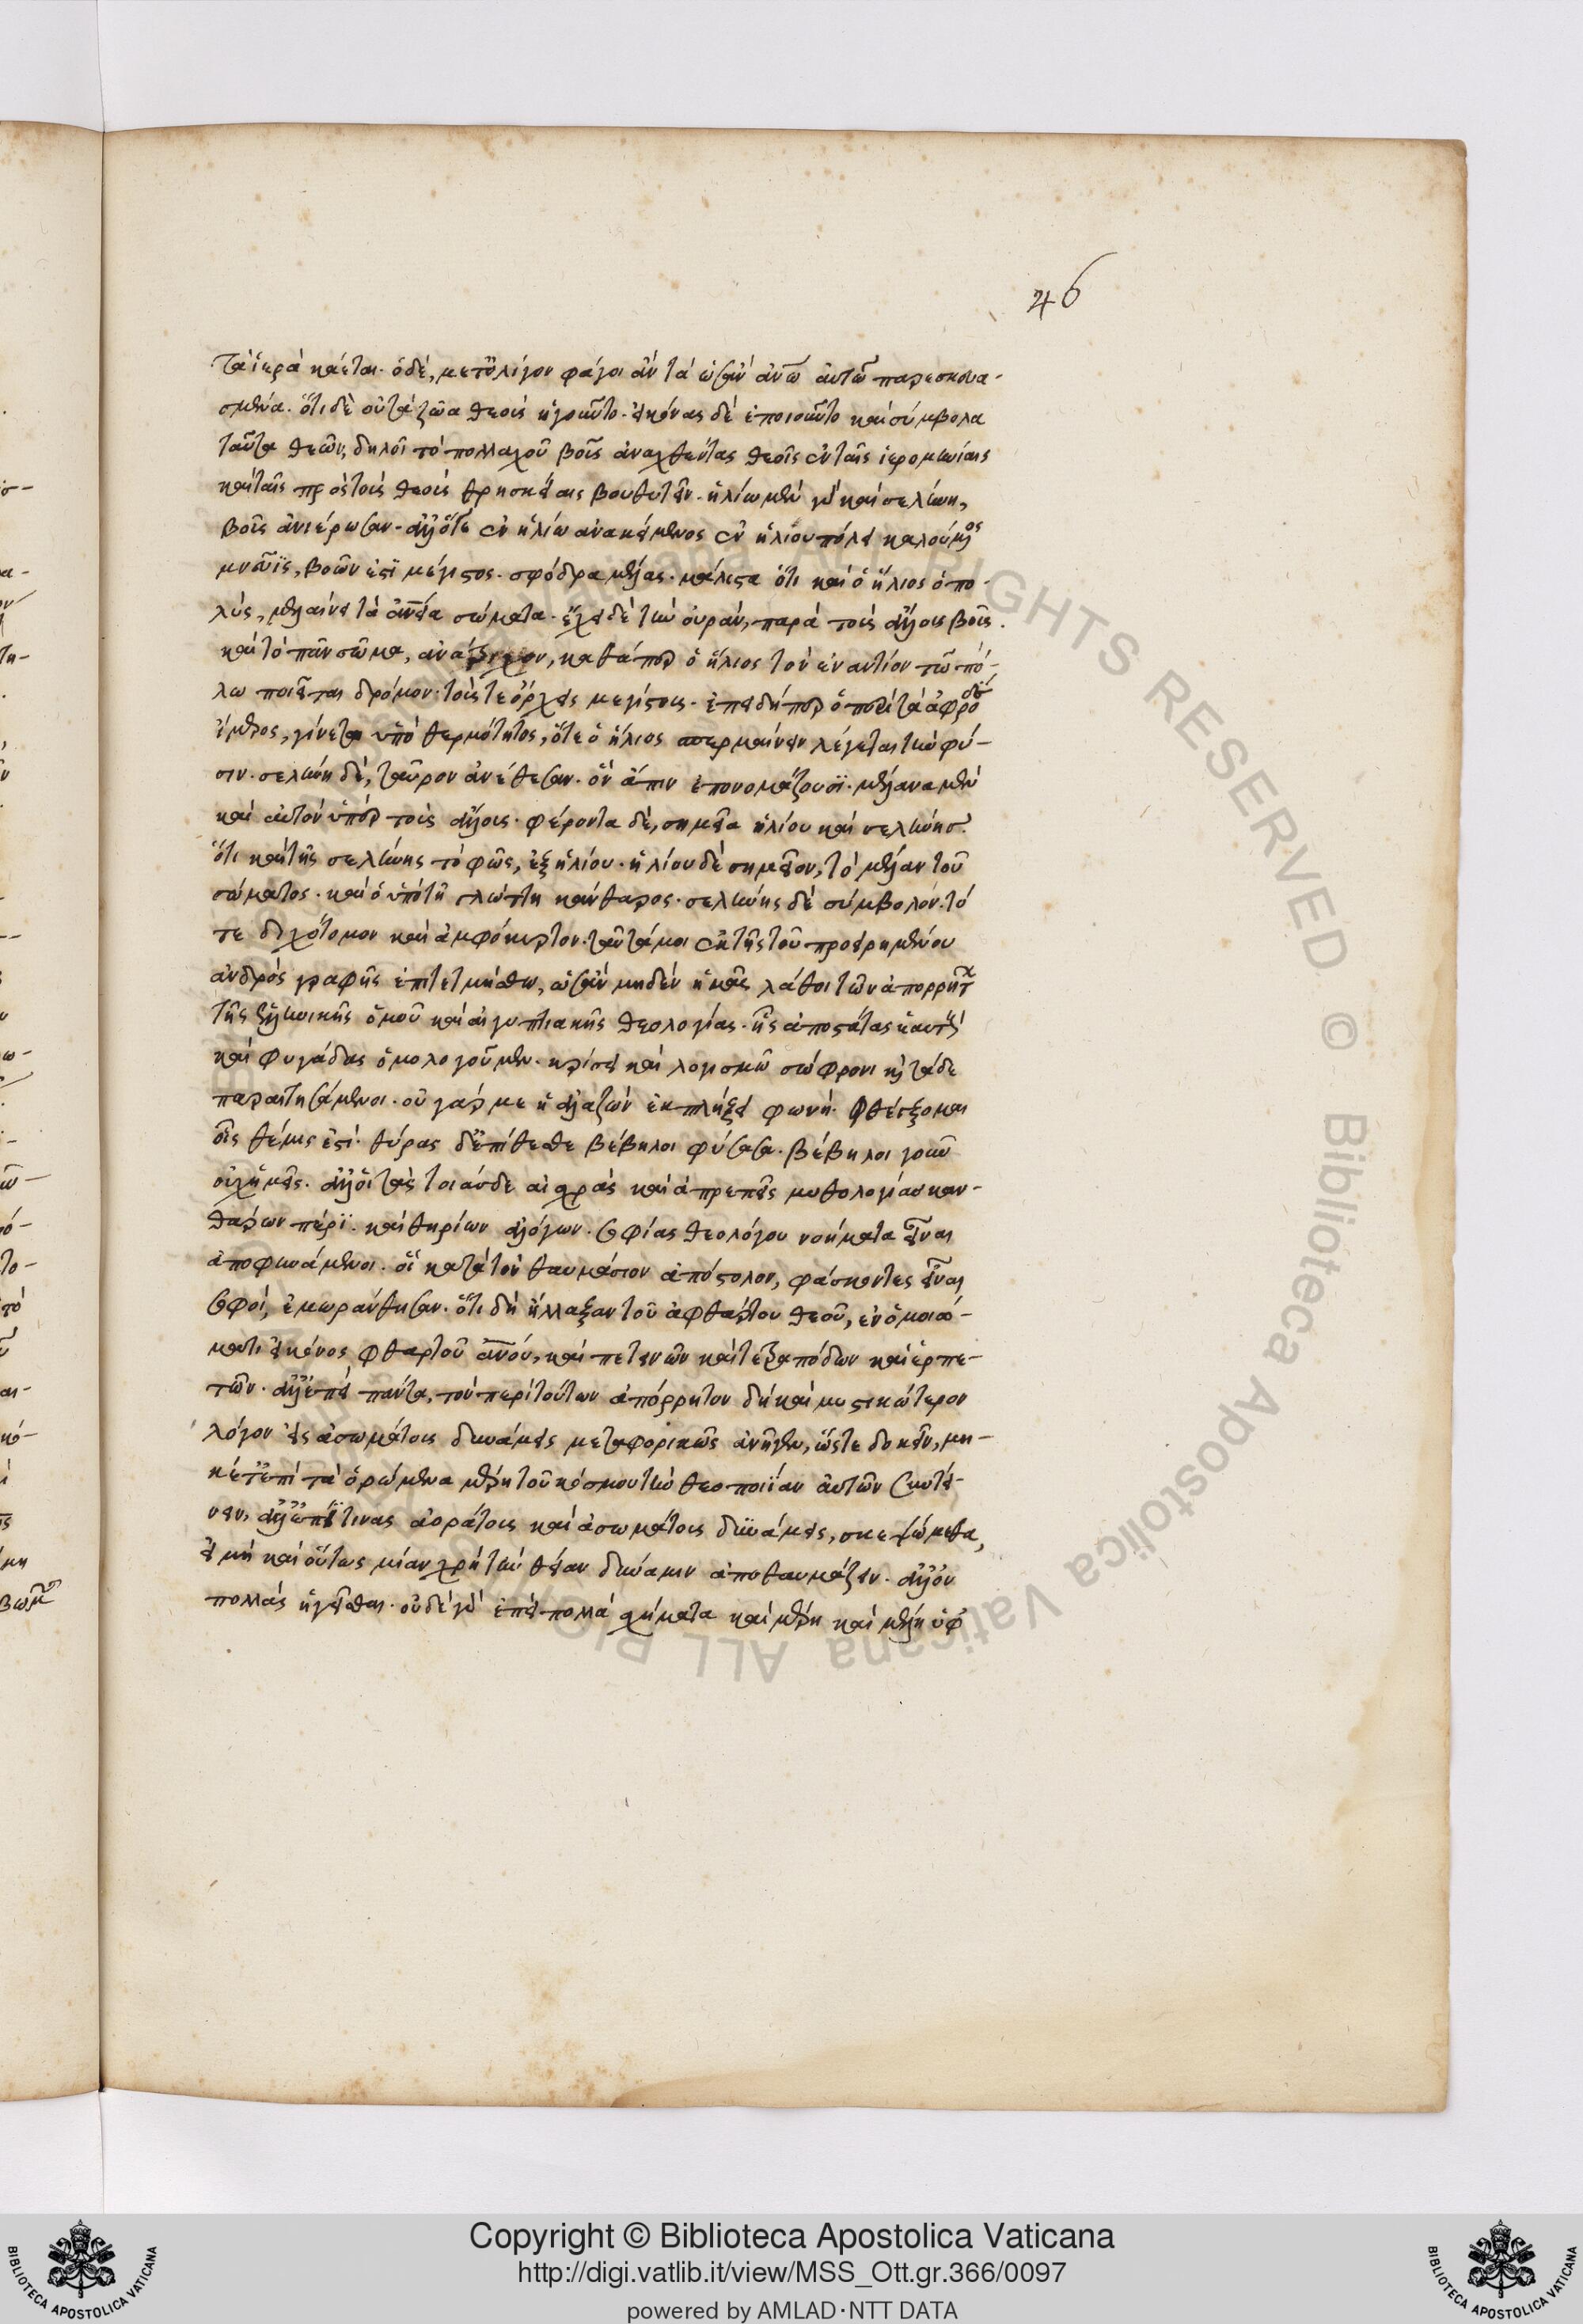 46
τὰ ἱερὰ κάεται. ὁ δὲ, μετ' ὀλίγον φάγοι ἂν τὰ ὡσὰν ἀνω αὐτῶ παρεσκευα-
σμένα. ὅτι δὲ οὐ τὰ ζῶα θεοὺς ἡγοῦντο. εἰκόνας δὲ ἐποιοῦντο καὶ σύμβολα
ταῦτα θεῶν, δηλοῖ τὸ πολλαχοῦ βοῦς ἀναχθέντας θεοῖς ἐν ταῖς ἱερομηνίαις
καὶ ταῖς πρὸς τοὺς θεοὺς θρησκείαις βουθυτεῖν. ἡλίω μὲν γὰρ καὶ σελήνη,
βοῦς ἀνιέρωσαν. ἀλλ' ὅτε ἐν ἡλίω ἀνακείμενος ἐν ἡλίου πόλει καλούμενος
μνεῦϊς, βοῶν ἐστὶ μέγιστος. σφόδρα μέλας. μάλιστα ὅτι καὶ ὁ ἥλιος ὁ πο-
λὺς, μελαίνει τὰ ἀνεῖα σώματα. ἔχει δὲ τὴν οὐρὰν, παρὰ τοὺς ἄλλους βοῦς.
καὶ τὸ πᾶν σῶμα, ἀνάτριχον, καθάπερ ὁ ἥλιος τὸν ἐναντίον τῶ πό-
λω ποιεῖται δρόμον. τούς τε ὄρχεις μεγίστους. ἐπειδήπερ ὁ περὶ τὰ ἀφροδίσια
ἵμερος, γίνεται ὑπὸ θερμότητος, ὅτε ὁ ἥλιος σπερμαίνειν λέγεται τὴν φύ-
σιν. σελήνη δὲ, ταῦρον ἀνέθεσαν. ὃν ἄπιν ἐπονομάζουσι. μέλανα μὲν
καὶ αὐτὸν ὑπὲρ τοὺς ἄλλους. φέροντα δὲ, σημεῖα ἡλίου καὶ σελήνης.
ὅτι καὶ τῆς σελήνης τὸ φῶς, ἐξ ἡλίου. ἡλίου δὲ σημεῖον, τὸ μέλαν τοῦ
σώματος. καὶ ὁ ὑπὸ τῆ γλώττη κάνθαρος. σελήνης δὲ σύμβολον. τό
τε διχότομον καὶ ἀμφόκυρτον. ταῦτά μοι ἐκ τῆς τοῦ προειρημένου
ἀνδρὸς γραφῆς ἐπιτετμήσθω, ὡσὰν μηδὲν ἡμᾶς λάθοι τῶν ἀπορρήτων
τῆς ἑλληνικῆς ὁμοῦ καὶ αἰγυπτιακῆς θεολογίας. ἧς ἀποστάτας ἑαυτοὺς
καὶ φυγάδας ὁμολογοῦμεν. κρίσει καὶ λογισμῶ σώφρονι καὶ τάδε
παραιτησάμενοι. οὐ γάρ με ἡ ἀλαζὼν ἐκπλήξει φωνή. φθέγξομαι
οἷς θέμις ἐστί. θύρας δ' ἐπίθεσθε βέβηλοι φύσασα. βέβηλοι γοῦν
οὐχ ἡμεῖς. ἀλλ' οἱ τὰς τοιάσδε αἰσχρὰς καὶ ἀπρεπεῖς μυθολογίας καν-
θάρων πέρι. καὶ θηρίων ἀλόγων. σοφίας θεολόγου νοήματα εἶναι
ἀποφηνάμενοι. οἳ κατὰ τὸν θαυμάσιον ἀπόστολον, φάσκοντες εἶναι
σοφοί, ἐμωράνθησαν. ὅτι δὴ ἤλλαξαν τοῦ ἀφθάρτου θεοῦ, ἐν ὁμοιώ-
ματι εἰκόνος φθαρτοῦ ἀνου, καὶ πετεινῶν καὶ τετραπόδων καὶ ἑρπε-
τῶν. ἀλλ' ἐπεὶ πάντα, τὸν περὶ τούτων ἀπόρρητον δὴ καὶ μυστικώτερον
λόγον εἰς ἀσωμάτους δυνάμεις μεταφορικῶς ἀνῆγεν, ὥστε δοκεῖν, μη-
κέτ' ἐπὶ τὰ ὁρώμενα μέρη τοῦ κόσμου τὴν θεοποιΐαν αὐτῶν συντεί-
νειν, ἀλλ' ἐπί τινας ἀοράτους καὶ ἀσωμάτους δυνάμεις, σκεψώμεθα,
εἰ μὴ καὶ οὕτως μίαν χρὴ τὴν θείαν δύναμιν ἀποθαυμάζειν. ἀλλ' οὐ
πολλὰς ἡγεῖσθαι. οὐδὲ γὰρ ἐπεὶ πολλὰ σχήματα καὶ μέρη καὶ μέλη ὑφ'
Copyright © Biblioteca Apostolica Vaticana
http://digi.vatlib.it/view/MSS_Ott.gr.366/0097
powered by AMLAD·NTT DATA